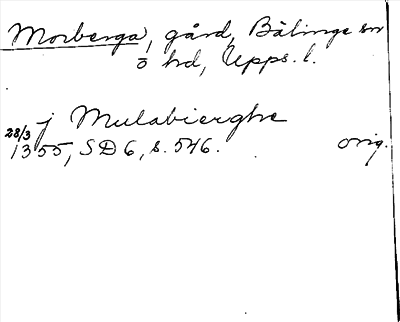 Morberga, gård, Bälinge sn
o hd, Upps. l.
j Mulabierghe
28/3 1355, SD 6, s. 546. orig.